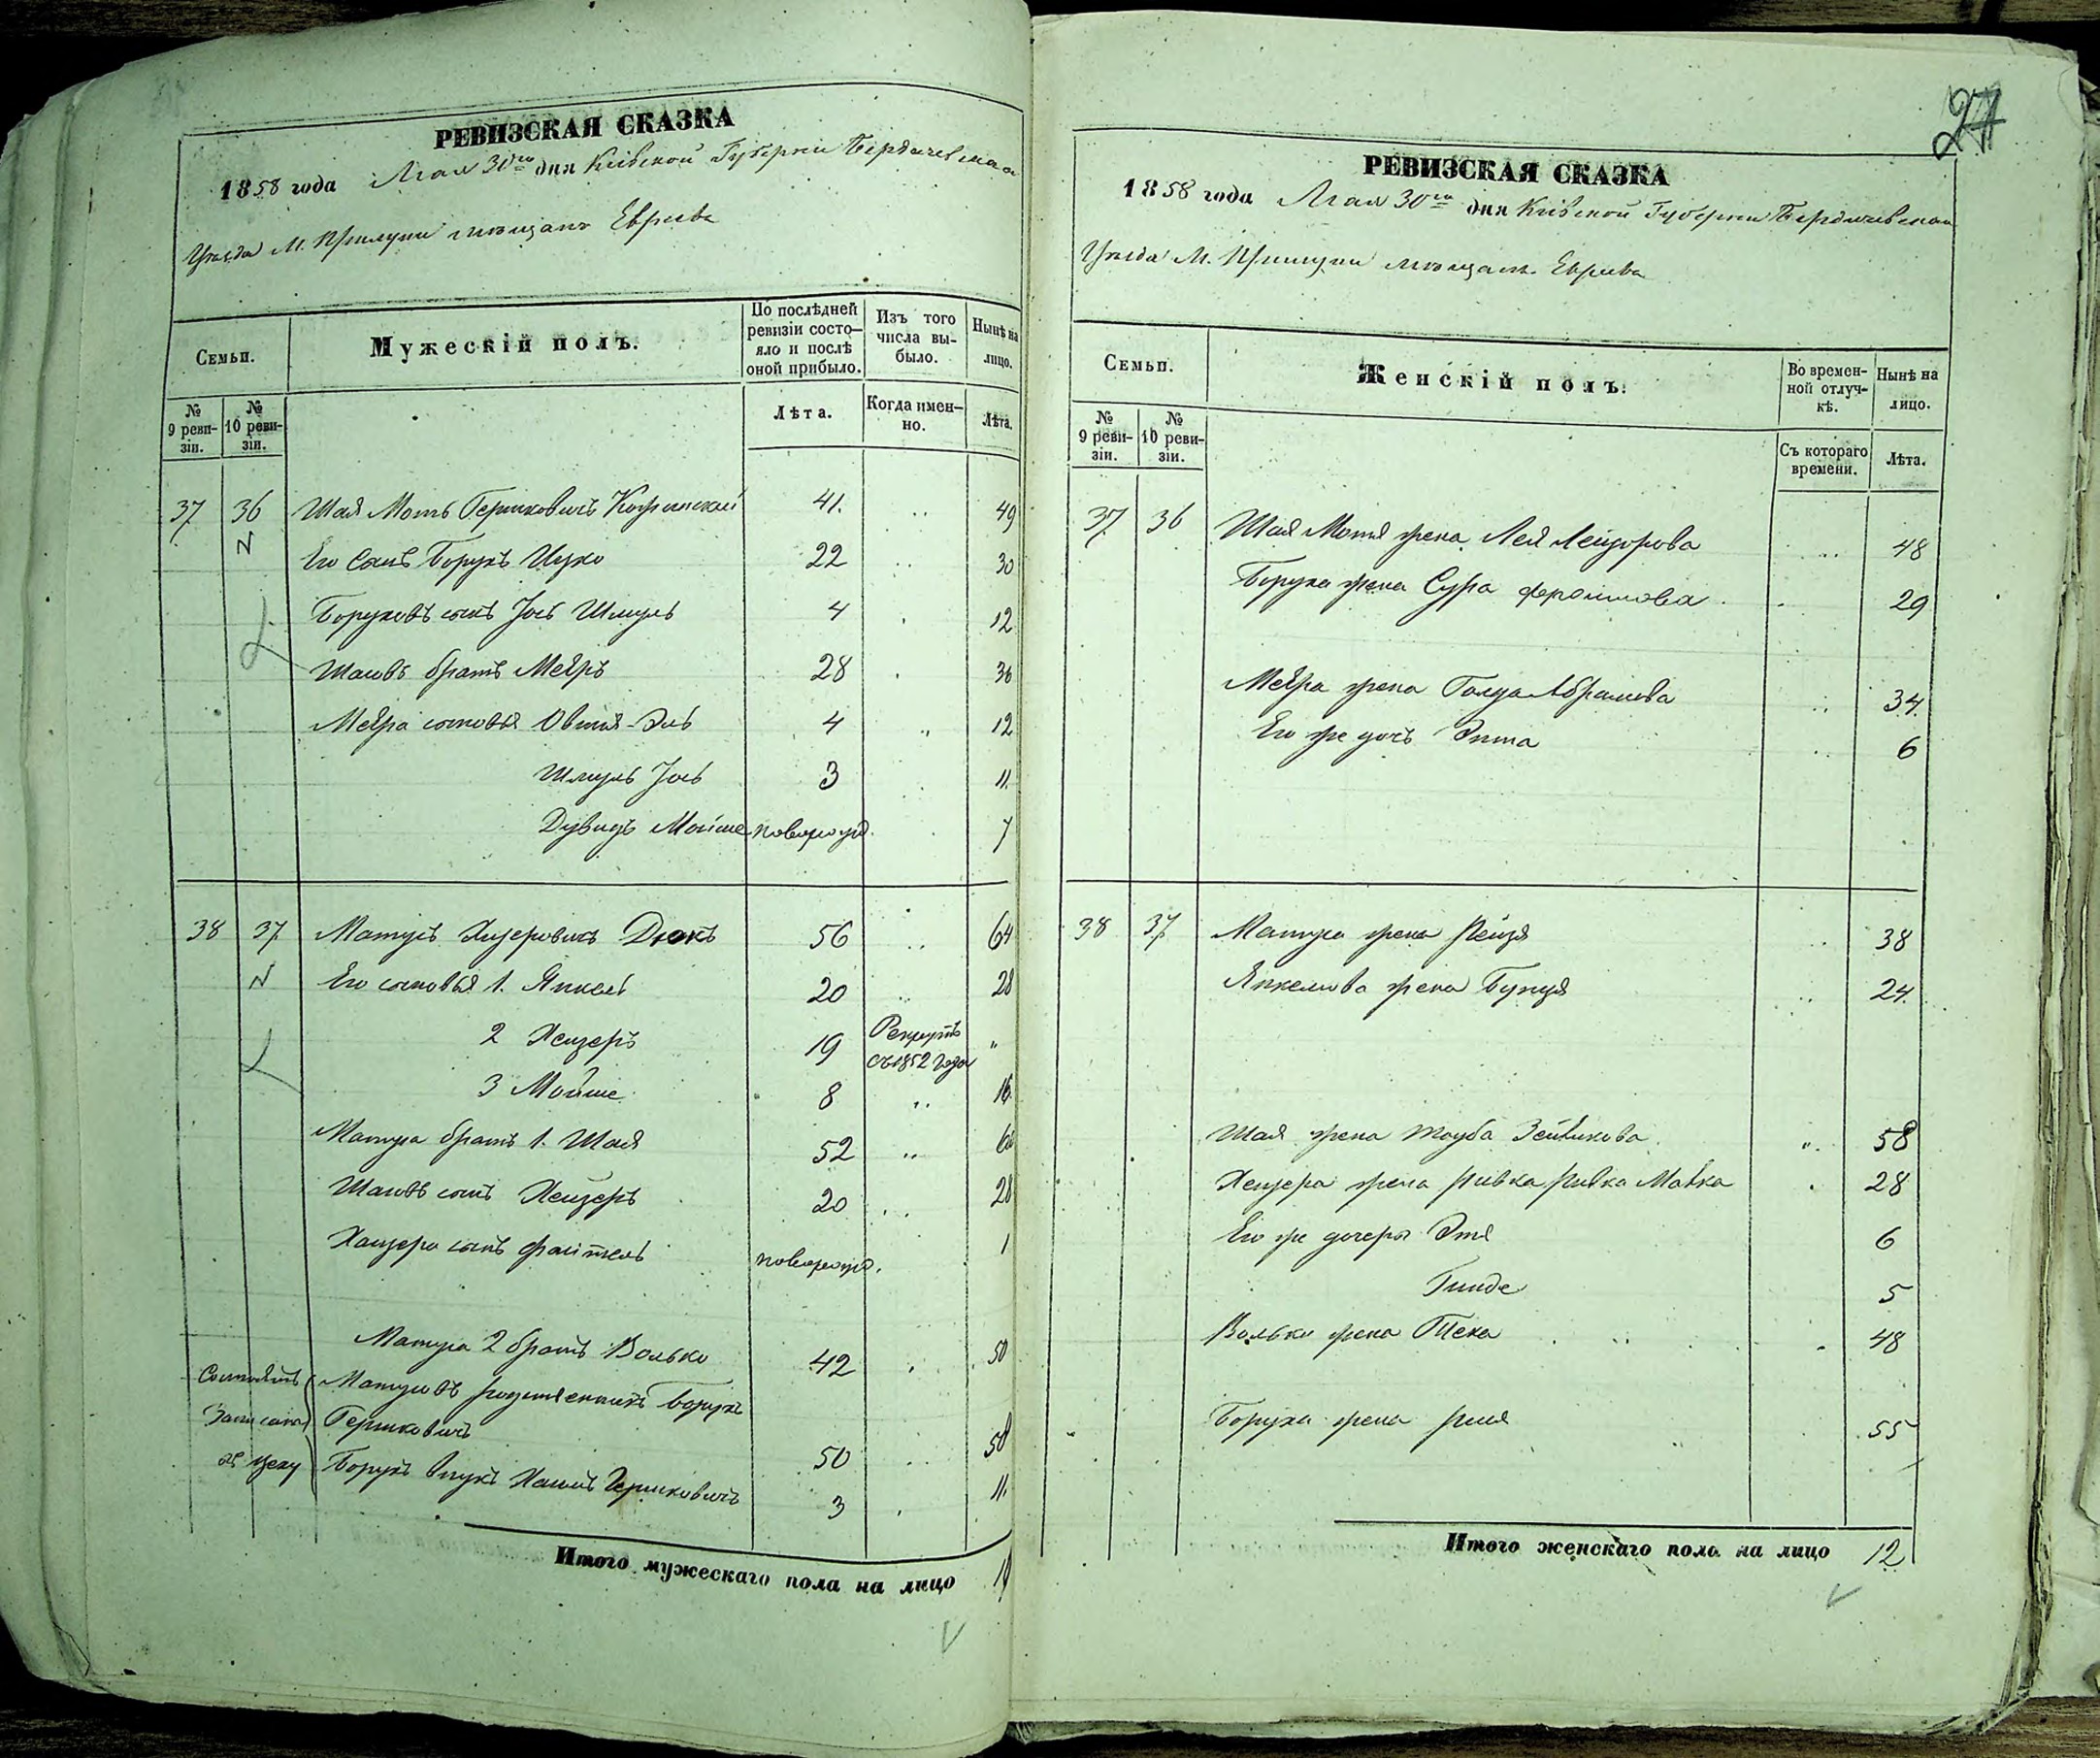 РЕВИЗСКАЯ СКАЗКА
1858 года Мая 30го дня Кіевской Губерніи Бердичевскаго
Уѣзда М. Прилуки мѣщанъ Евреевъ
Семьи.
Мужескій полъ.
По послѣдней ревизіи состояло и послѣ оной прибыло.
Изъ того числа выбыло.
Нынѣ на лицо.
№ 9 ревизіи.
№ 10 ревизіи.
Лѣта.
Когда именно.
Лѣта.
37 36 Шая Моть Гершковичъ 41. 49
Его сынъ Борухъ Ицко 22 30
Боруховъ сынъ Іось Шмуль 4 12
Шаевъ братъ Меѣръ 28 36
Меѣра сыновья 4 12
Шмуль Іось 3 11.
Дувидъ Мойше новорожд. 7
38 37 Матусъ Хизеровичъ Дюкъ 56 64
Его сыновья 1. Янкель 20 28
2 Хейзеръ 19 Рекрутъ съ 1852 года "
3 Мойше 8 16
Матуса братъ 1. Шая 52 60
Шаевъ сынъ Хейзеръ 20 28
Хейзера сынъ Файтель новорожд. 1
Матуса 2 братъ Волько 42 50
Матусовъ родственникъ Борухъ
Записано Гершковичъ 50 58
въ цеху Борухъ внукъ Хаимъ Гершковичъ 3 11.
Итого мужескаго пола на лицо
27
РЕВИЗСКАЯ СКАЗКА
1858 года Мая 30го дня Кіевской Губерніи Бердичевскаго
Уѣзда М. Прилуки мѣщанъ Евреевъ
Семьи.
Женскій полъ.
Во временной отлучкѣ.
Нынѣ на лицо.
№ 9 ревизіи.
№ 10 ревизіи.
Съ котораго времени.
Лѣта.
37 36 Шая Мотя жена Лея Лейзорова 48
Боруха жена Сура Фроимова 29
Меѣра жена Голда Абрамова 34.
Его же дочь Энта 6
38 37 Матуса жена Рейзя 38
Янкелева жена Бунця 24.
Шая жена Тауба Зейликова 58
Хейзера жена Ривка Малка 28
Его же дочери Этя 6
Гинде 5
Волька жена 48
Боруха жена 55
Итого женскаго пола на лицо 12